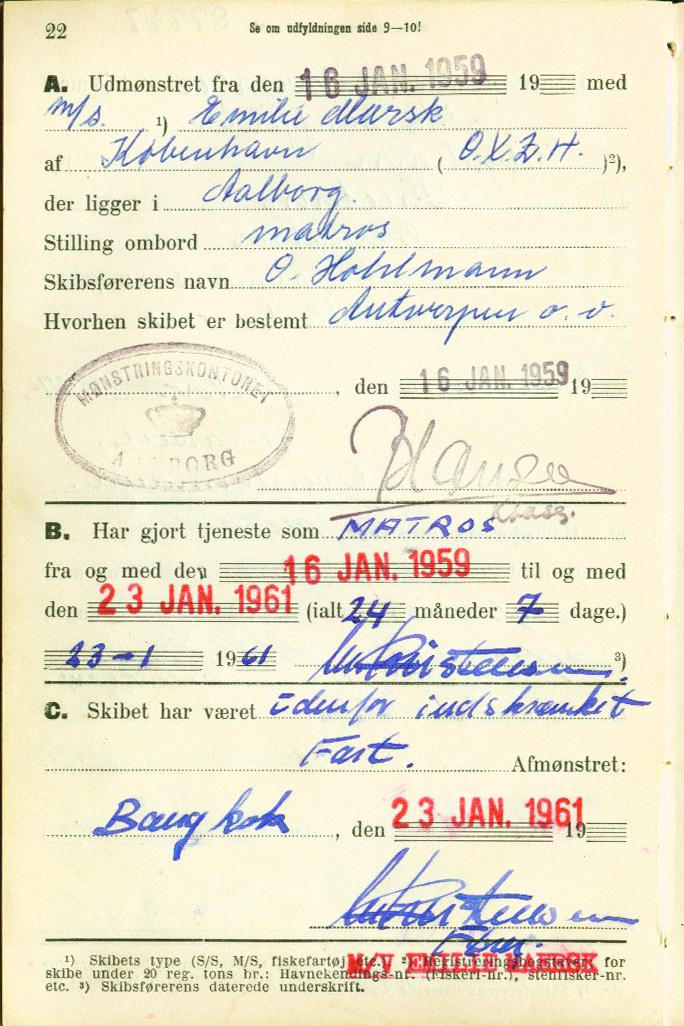 22 Se om udfyldningen side 9—10!
A. Udmønstret fra den 16 JAN. 1959 19 med
M/s. ¹) Emilie Mærsk
af København (O.X.Z.H.)²),
der ligger i Aalborg.
Stilling ombord matros
Skibsførerens navn O. Hohlmann
Hvorhen skibet er bestemt Antwerpen o. v.
MØNSTRINGSKONTORET
AALBORG
, den 16 JAN. 1959 19
B. Har gjort tjeneste som MATROS
fra og med den 16 JAN. 1959 til og med
den 23 JAN. 1961 (ialt 24 måneder 7 dage.)
23-1 1961 ³)
C. Skibet har været Udenfor indskrænket
Fart. Afmønstret:
Bangkok, den 23 JAN. 1961 19
M/V EMILIE MÆRSK
¹) Skibets type (S/S, M/S, fiskefartøj etc.). ²) Registreringsbogstaver; for
skibe under 20 reg. tons br.: Havnekendings-nr. (fiskeri-nr.), stenfisker-nr.
etc. ³) Skibsførerens daterede underskrift.